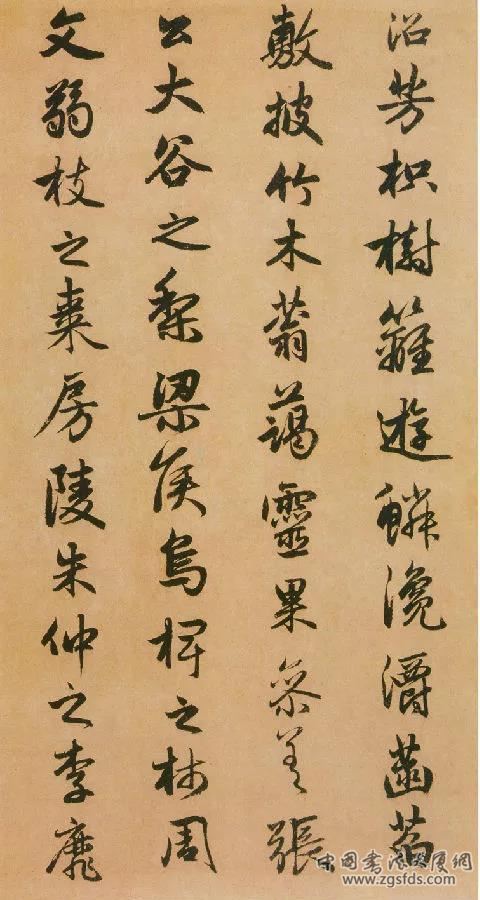 沼芳枳樹籬遊鱗瀺灂菡萏
敷披竹木蓊藹靈果參差張
公大谷之梨梁侯烏椑之柿周
文弱枝之棗房陵朱仲之李靡
中國書法
www.zgsfds.com